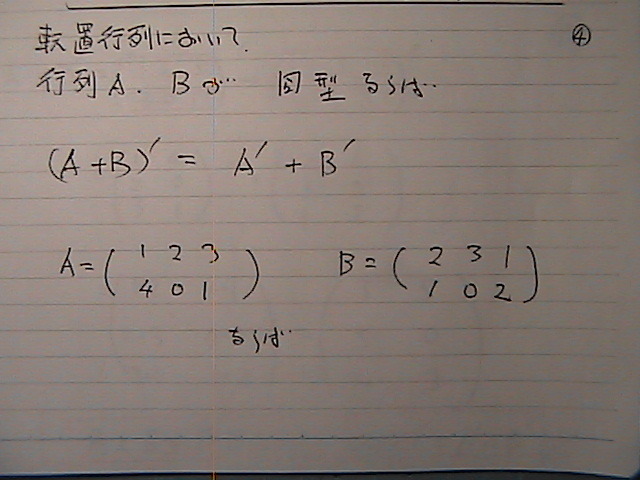 転置行列において、 ④
行列A、Bが 同型 ならば
(A+B)′ = A′ + B′
A = ( 1 2 3 B = ( 2 3 1
4 0 1 ) 1 0 2 )
ならば